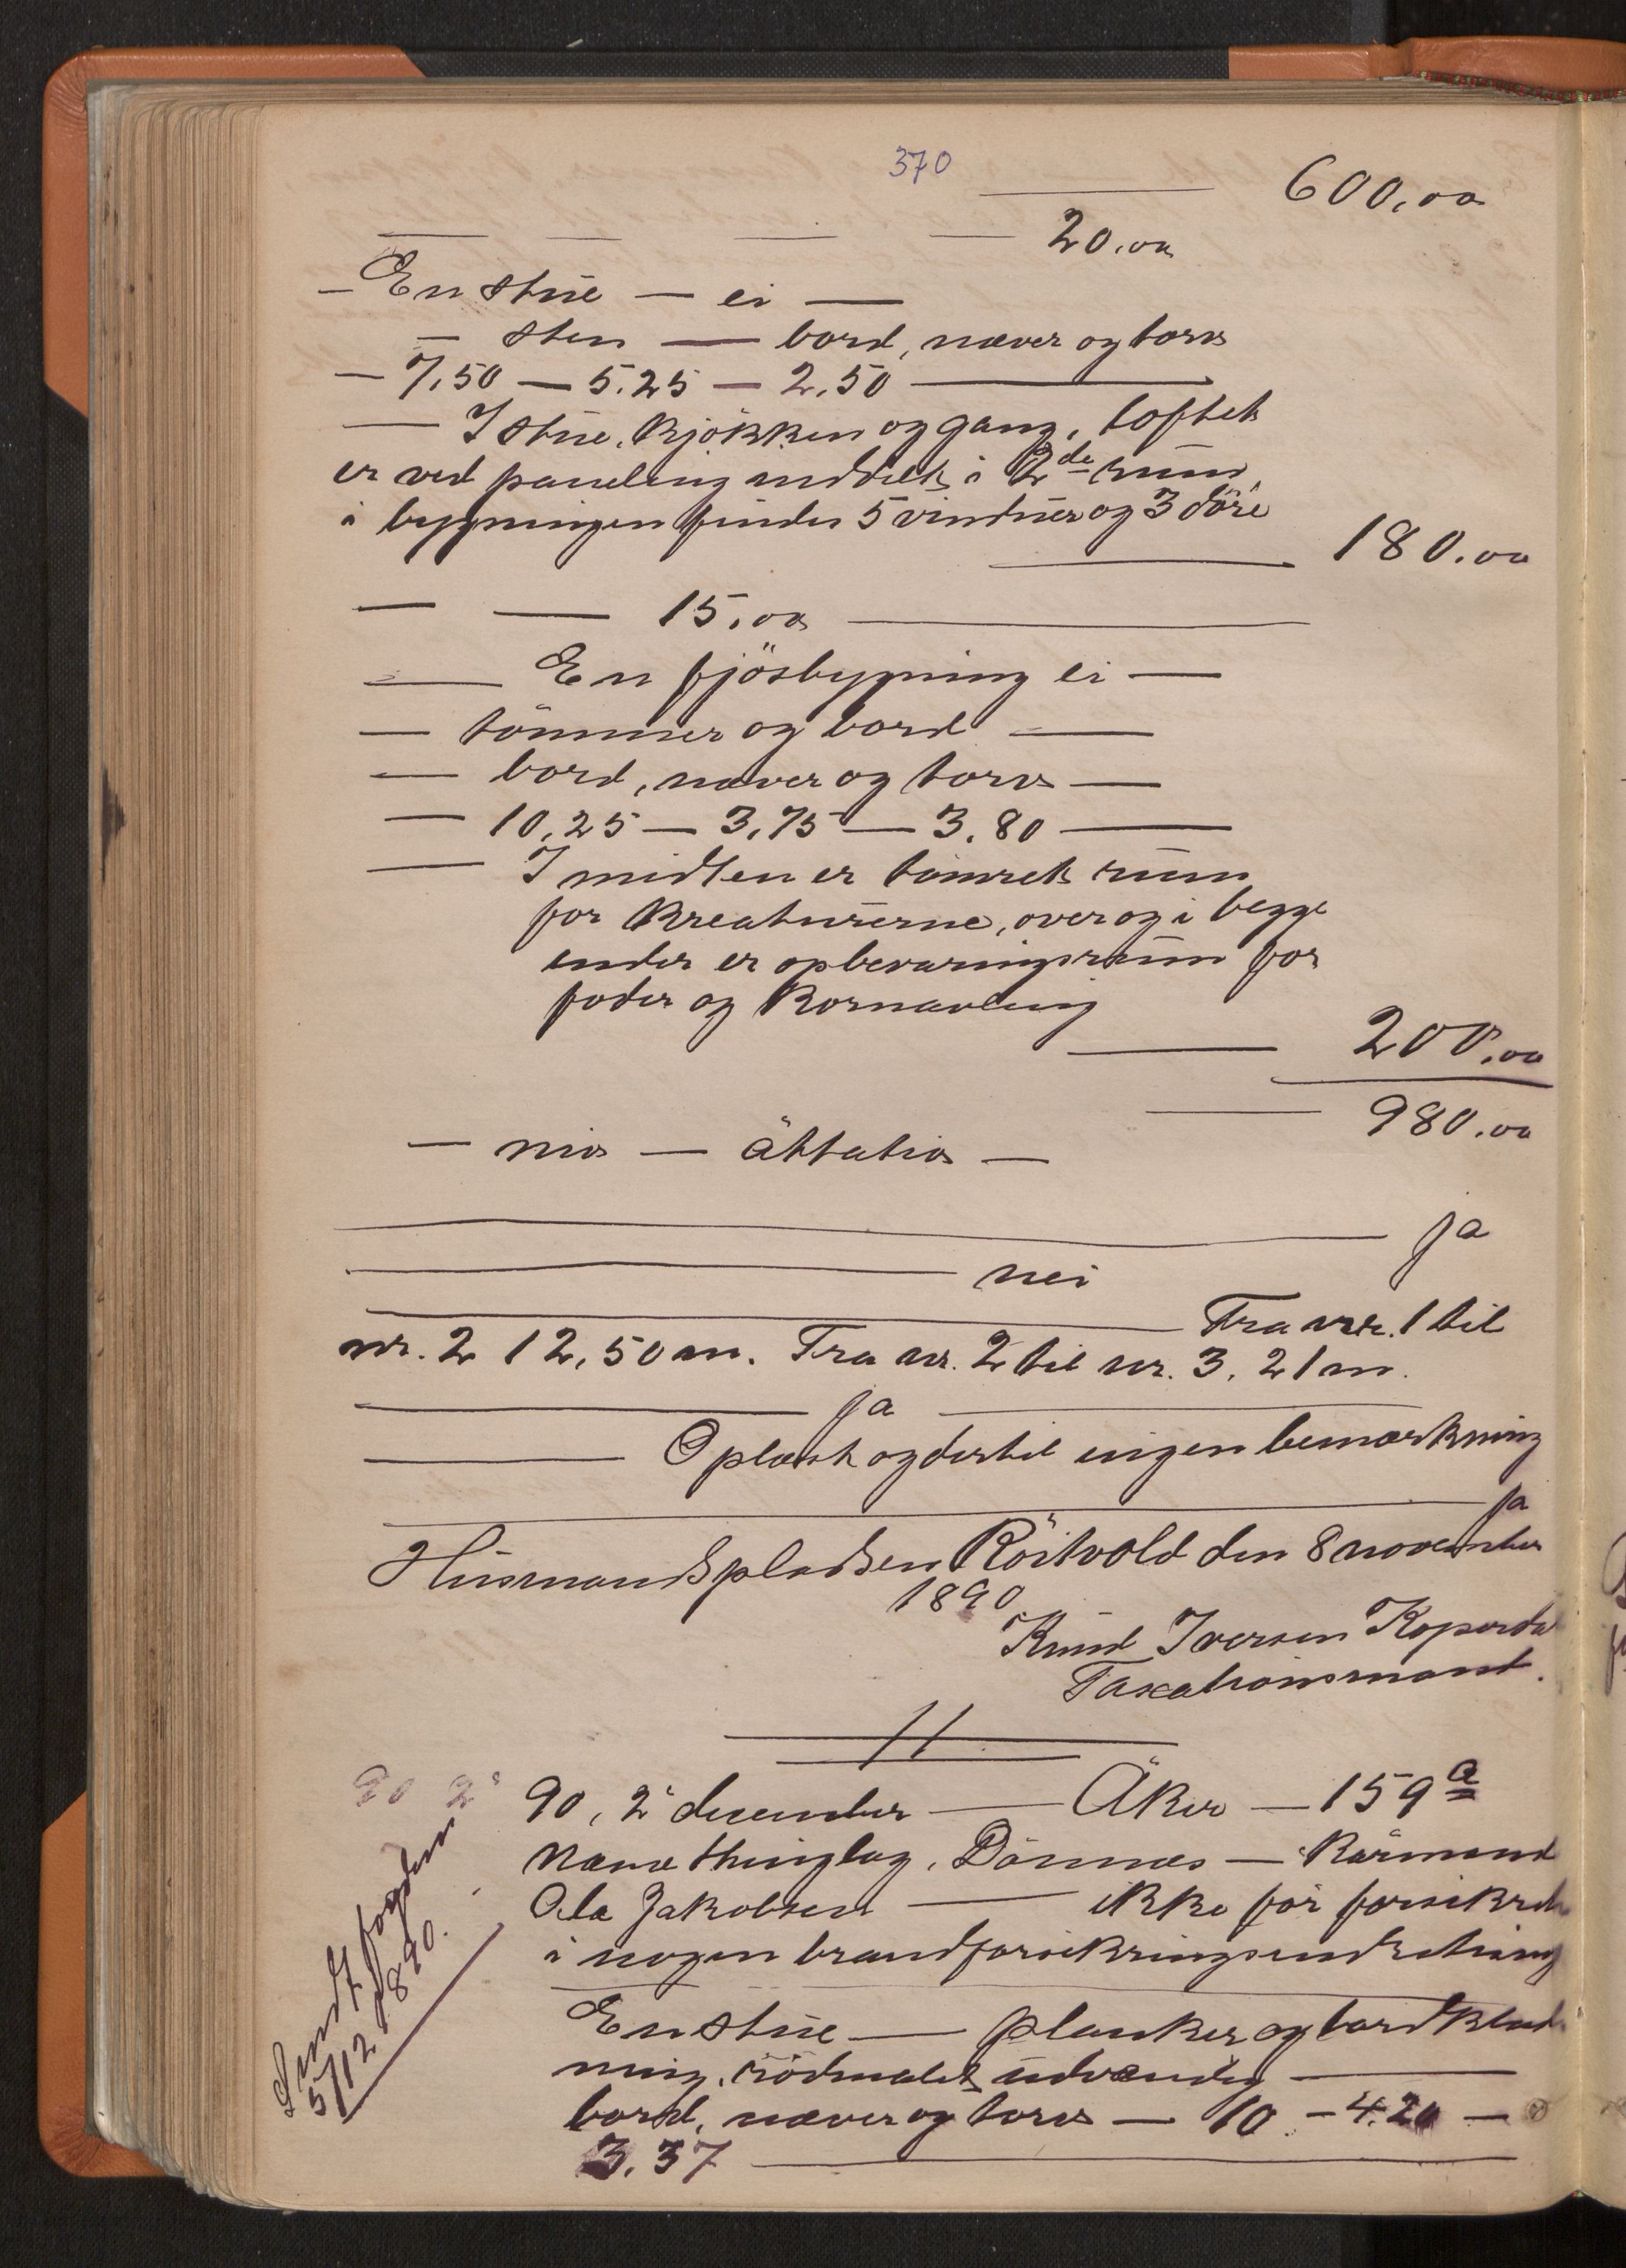 370
— 600,00
— — — — 20.00
— En stue — ei —
— sten — bord, næver og torv
— 7,50 — 5.25 — 2,50 —
— I stue, kjøkken og gang, loftet
er ved paneling inddelt i 2de rum,
i bygningen findes 5 vinduer og 3 döre
— 180.00
— — 15,00 —
— En fjösbygning ei —
— tömmer og bord —
— bord, næver og torv —
— 10,25 — 3,75 — 3.80 —
— I midten er tömret rum
for kreaturerne, over og i begge
ender er opbevaringsrum for
foder og kornavling
— 200,00
— 980.00
— ni — åttati —
— ja
— nei
— Fra nr. 1 til
nr. 2 12,50 m. Fra nr. 2 til nr. 3. 21 m.
— ja —
— Oplæst og dertil ingen bemærkning
— ja
Husmandspladsen Röitvold den 8 november
1890
Knud Iversen Kopardal
Taxationsmand.
90 2'
90, 2' december — Åker — 159a
Næsna thinglag, Dönnes — Kårmand
Ola Jakobsen — ikke för forsikret
i nogen brandforsikringsindretning
En stue — planker og bordklæd-
ning, rödmalet udvendig —
bord, næver og torv — 10. — 4.20 —
3.37 —
Sendt fogden
5/12 1890.